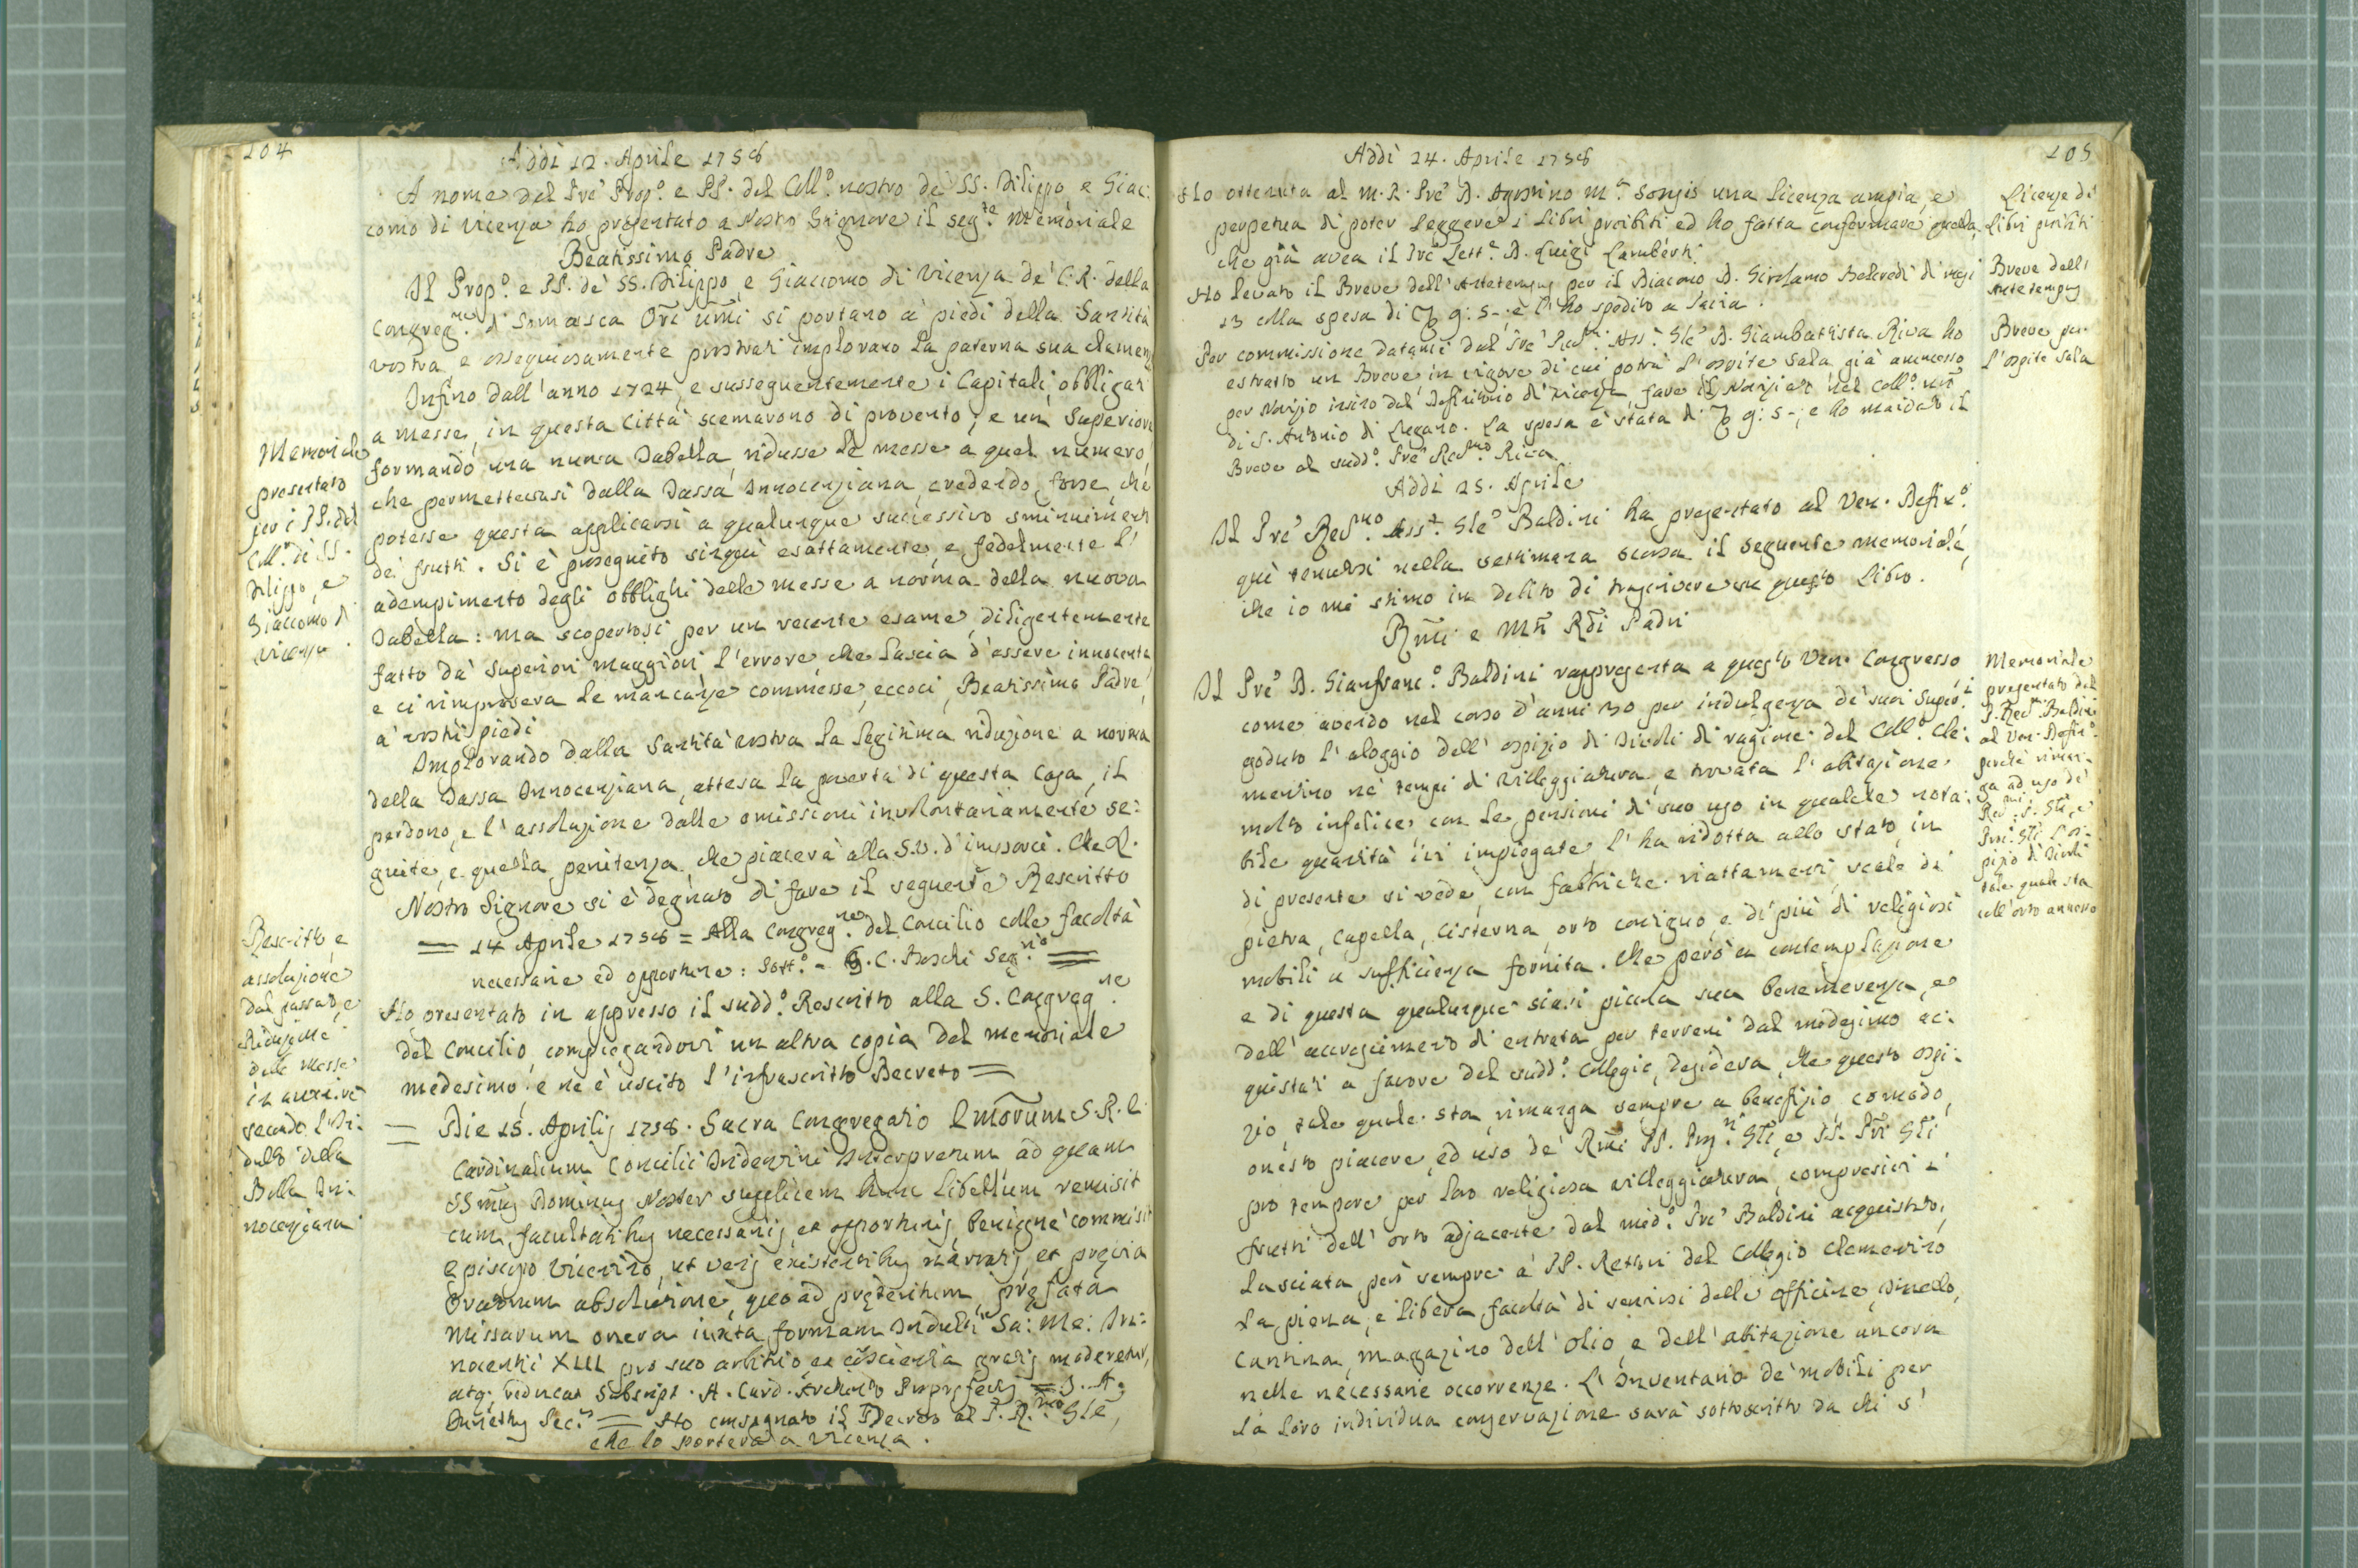 104
Addì 12. Aprile 1758
A nome del Prē Prop.º e PP. del Coll.º nostro de' SS. Filippo, e Giac:
como di Vicenza ho presentato a Nostro Signore il seg.te Memoriale
Beatissimo Padre
Il Prop.º e PP. de' SS. Filippo, e Giacomo di Vicenza de' C. R. della
Congreg.ne di Somasca Ori umi si portano a' piedi della Santità
vostra e ossequiosamente prostrati implorano la paterna sua clemenz
Infino dall'anno 1724, e susseguentemente i Capitali, obbligati
a messe, in questa Città scemarono di provento, e un Superiore
formando una nuova Tabella, ridusse le messe a quel numero,
che permettevasi dalla Tassa Innocenziana, credendo forse, che
potesse questa applicarsi a qualunque successivo sminuiment
de' frutti. Si è proseguito sinquì esattamente, e fedelmente l'
adempimento degli obblighi delle messe a norma della nuova
Tabella: ma scopertosi per un recente esame, diligentemente
fatto da' Superiori maggiori l'errore, che lascia d'essere innocente,
e ci rimprovera le mancanze commesse, eccoci, Beatissimo Padre,
a' vostri piedi
Implorando dalla Santità vostra la legitima riduzione a norma
della Tassa Innocenziana, attesa la povertà di questa Casa, il
perdono, e l'assoluzione dalle omissioni involontariamente se:
guite, e quella penitenza, che piacerà alla S.V. d'imporci. Che &.
Nostro Signore si è degnato di fare il seguente Rescritto
= 14 Aprile 1758 = Alla Congreg.ne del Concilio colle facoltà
necessarie ed opportune: Sott.º - G. C. Boschi Seg.rio =
Ho presentato in appresso il sudd.º Rescritto alla S. Congreg.ne
del Concilio, compiegandovi un altra copia del memoriale
medesimo, e ne è uscito l'infrascritto Decreto =
= Die 15. Aprilis 1758. Sacra Congregatio Emorum S. R. E.
Cardinalium Concilii Tridentini Interpretum ad quam
SSmus Dominus Noster supplicem hunc libellum remisit
cum facultatibus necessariis, et opportunis, benignè commisit
Episcopo Vicentino, ut veris existentibus narratis, et previa
Oratorum absolutione, quoad preteritum, prefata
Missarum onera iuxta formam Indulti Sa: Me: In:
nocentii XIII pro suo arbitrio, et coscientia gratis moderetur,
atq; reducat Subscript. A. Card. Prefectus = J. A.
Sec.us = Ho consegnato il Decreto al P. R.mo Gle,
che lo porterà a Vicenza.
Memoriale
presentato
per i PP. del
Coll.º di SS.
Filippo, e
Giacomo di
Vicenza.
Rescritto, e
assoluzione
dal passato, e
Riduzione
delle messe
in avvenire
secondo l'In:
dulto della
Bolla In:
nocenziana
105
Addì 24. Aprile 1758
Ho ottenuta al M. R. Prē D. Agostino M.a Songis una licenza ampia, e
perpetua di poter leggere i libri proibiti ed ho fatta confermare quella,
che già avea il Prē Lett.e D. Luigi Lamberti.
Ho levato il Breve dell'Extratempus per il Diacono D. Girolamo Belcredi di mesi
13 colla spesa di 9: 5 -; e l'ho spedito a Pavia.
Per commissione datami dal Prē Red.mo Ass.e Gle D. Giambattista Riva ho
estratto un Breve in vigore di cui potrà l'ospite Sala già ammesso
per Novizio insino dal Definitorio di Vicenza, fare il Noviziato nel Coll.º nrō
di S. Antonio di Lugano. La spesa è stata di 9: 5 -; e ho mandato il
Breve al sudd.º Prē Red.mo Riva.
Addì 25. Aprile
Il Prē Red.mo Ass.e Gle Baldini ha presentato al Ven. Defin.º
quì tenutosi nella settimana scorsa il seguente memoriale,
che io mi stimo in debito di trascrivere su questo libro.
Rmi e Mti Rdi Padri
Il Prē D. Gianfranc.º Baldini rappresenta a questo Ven. Congresso
come avendo nel corso d'anni 30 per indulgenza de' suoi Super.i
goduto l'aloggio dell'ospizio di Tivoli di ragione del Coll.º Cle:
mentino ne' tempi di villeggiatura, e trovata l'abitazione
molto infelice, con le pensioni di suo uso in qualche nota:
bile quantità ivi impiegate, l'ha ridotta allo stato, in
di presente si vede, con fabbriche, riattamenti, scale di
pietra, Capella, Cisterna, orto contiguo, e di più di religiosi
mobili a sufficienza fornita. Che però a contemplazione
e di questa qualunque siasi picola sua benemerenza, e
dell'accrescimento di entrata per terreni dal medesimo ac:
quistati a favore del sudd.º Collegio, desidera, che questo ospi:
zio, tale quale sta, rimanga sempre a benefizio, comodo,
onesto piacere, ed uso de' Rmi PP. Prep.ti Gli, e PP. Pri Gli
pro tempore per loro religiosa villeggiatura, compresivi i
frutti dell'orto adjacente dal med.º Prē Baldini acquistato,
lasciata però sempre a' PP. Rettori del Collegio Clementino
la piena, e libera facoltà di servirsi delle officine, Tinello,
Cantina, magazino dell'olio, e dell'abitazione ancora
nelle necessarie occorrenze. L'Inventario de' mobili per
la loro individua conservazione sarà sottoscritto da chi s'
Licenze di
libri proibiti
Breve dell'
Extratempus
Breve per
l'ospite Sala
Memoriale
presentato dal
P. Red.mo Baldini
al Ven. Defin.º
perchè riman:
ga ad uso de'
Red.mi P. Gli, e
Proc. Gli l'os:
pizio di Tivoli
tale quale sta
coll'orto annesso